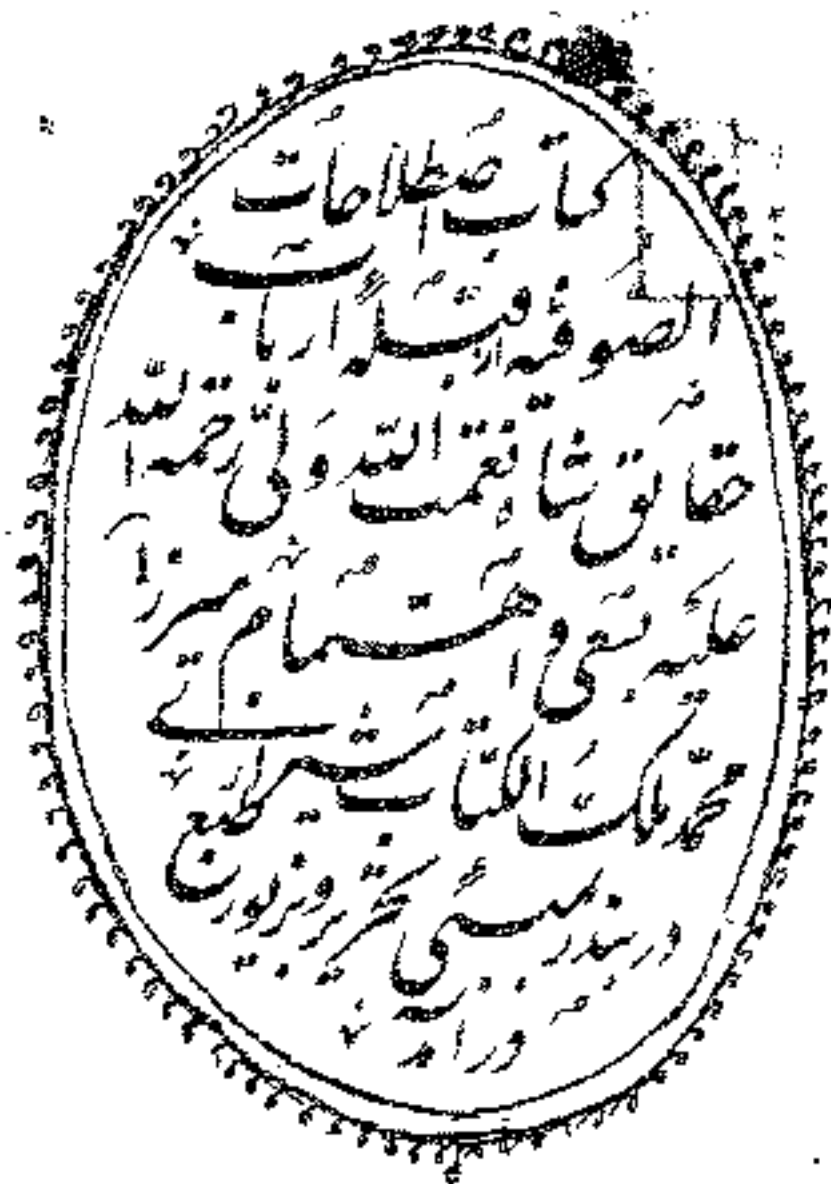 کتاب اصطلاحات
الصوفیه از قبله ارباب
حقایق شاه نعمت الله ولی رحمة الله
علیه بسعی و اهتمام میرزا
محمد ملک الکتاب شیرازی
در بندر بمبئی بتحریر و زیور طبع
در آمد